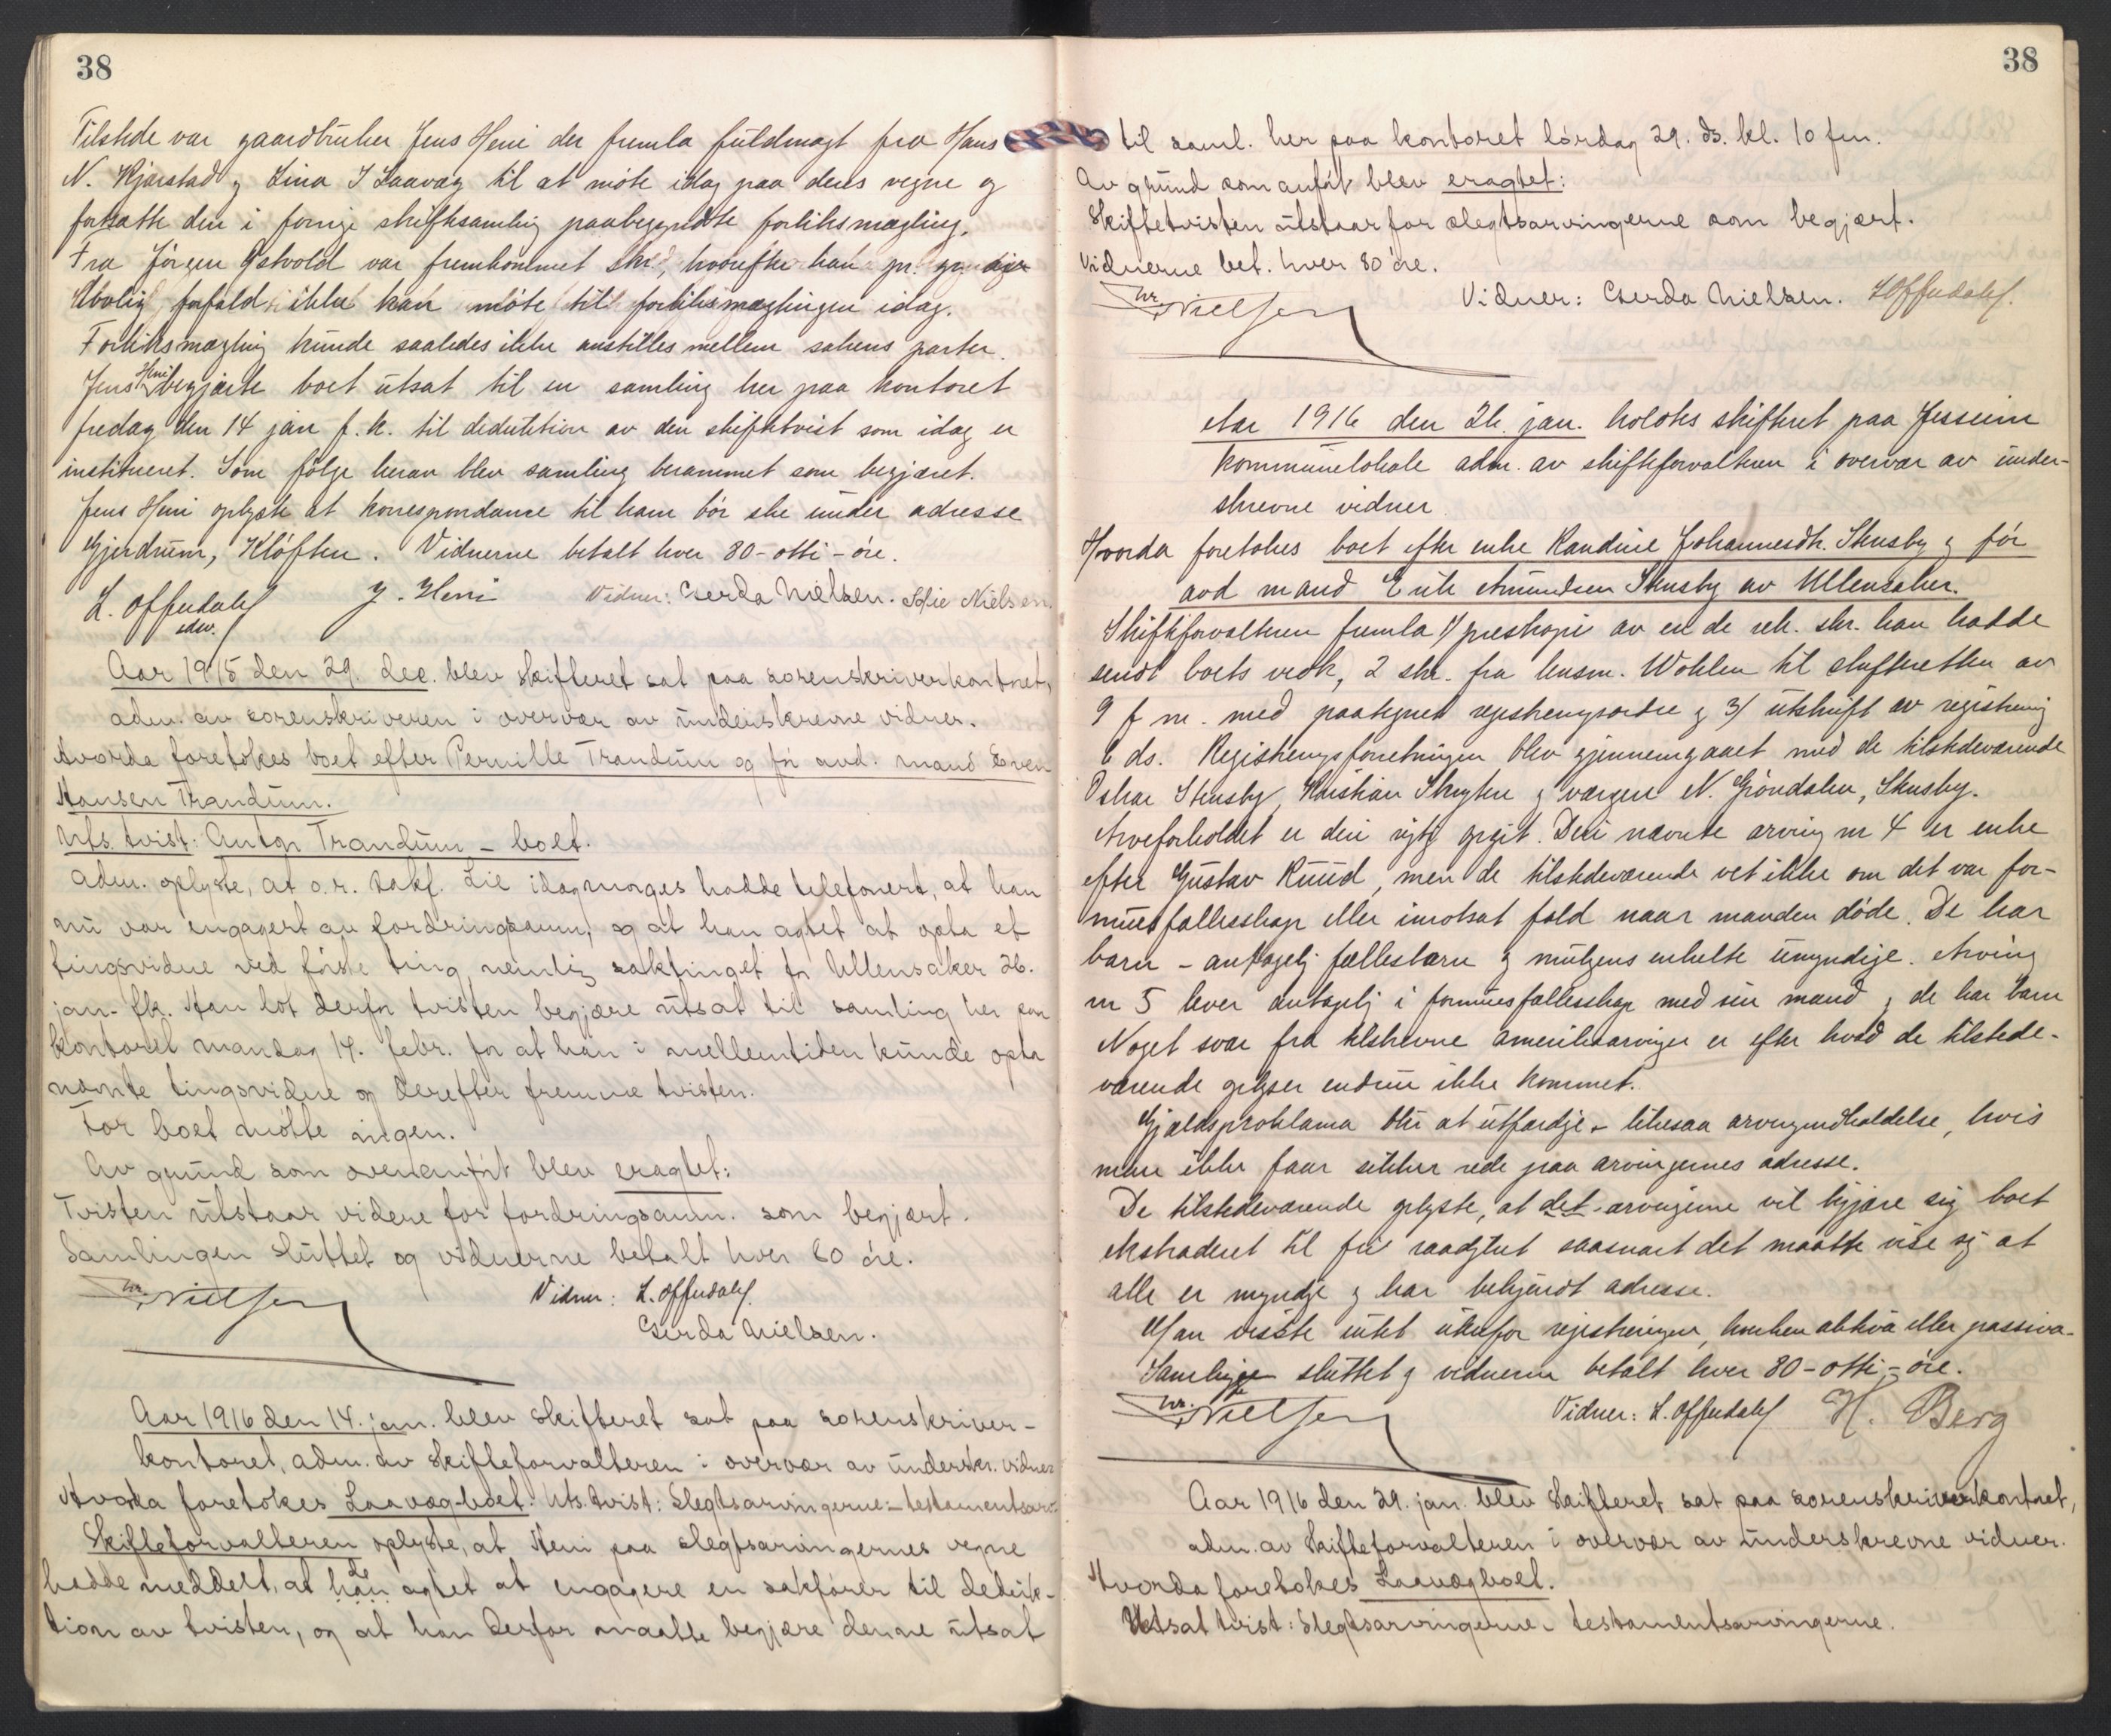 38
Tilstede var gaardbruker Jens Heni der fremla fuldmagt fra Hans
N. Kjærstad og Lina I Laavæg til at møte idag paa deres vegne og
fortsatte den i forrige skiftesamling paabegyndte forliksmægling.
Fra Jörgen Østvold var fremkommet skr., hvorefter han pr.
lovlig forfald ikke kan møte til forliksmæglingen idag.
Forliksmægling kunde saaledes ikke anstilles mellem sakens parter.
Jens Heni begjærte boet utsat til en samling her paa kontoret
fredag den 14 jan f. k. til deduktion av den skiftetvist som idag er
institueret. Som følge herav blev samling berammet som begjæret.
Jens Heni oplyste at korrespondance til ham bör ske under adresse
Gjerdrum, Klöften. Vidnerne betalt hver 80-otti-öre.
L. Offerdahl J. Heni Vidner: Gerda Nielsen. Sofie Nielsen.
edv.
Aar 1915 den 29. dec. blev skifteret sat paa sorenskriverkontoret,
adm. av sorenskriveren i overvær av underskrevne vidner.
Hvorda foretokes boet efter Pernille Trandum og för avd. mand Even
Hansen Trandum.
Uts. tvist: Anton Trandum - boet.
Adm. oplyste, at o.r. sakf. Lie idagmorges hadde telefonert, at han
nu var engagert av fordringsanm, og at han agtet at opta et
tingsvidne ved förste ting, nemlig saktinget for Ullensaker 26.
jan. fk. Han lot derfor tvisten begjære utsat til samling her paa
kontoret mandag 14. febr. for at han i mellemtiden kunde opta
nævnte tingsvidne og derefter fremme tvisten.
For boet mötte ingen.
Av grund som ovenanfört blev eragtet:
Tvisten utstaar videre for fordringsanm. som begjært.
Samlingen sluttet og vidnerne betalt hver 80 öre.
W. Nielsen Vidner: L. Offerdahl.
Gerda Nielsen.
Aar 1916 den 14. jan. blev skifteret sat paa sorenskriver-
kontoret, adm. av skifteforvalteren i overvær av underskr. vidner
Hvorda foretokes Laavæg-boet. Uts. tvist: Slegtsarvingerne - testamentsarv.
Skifteforvalteren oplyste, at Heni paa slegtsarvingernes vegne
hadde meddelt, at han de agtet at engagere en sakförer til deduk-
tion av tvisten, og at han derfor maatte begjære denne utsat
38
til saml. her paa kontoret lördag 29. ds. kl. 10 fm.
Av grund som anfört blev eragtet:
Skiftetvisten utstaar for slegtsarvingerne som begjært.
Vidnerne bet. hver 80 öre.
W. Nielsen Vidner: Gerda Nielsen. L Offerdahl.
Aar 1916 den 26. jan. holdtes skifteret paa Jessheim
kommunelokale adm. av skifteforvalteren i overvær av under-
skrevne vidner
Hvorda foretokes boet efter enke Randine Johannesdtr. Stensby og för
avd mand Erik Amundsen Stensby av Ullensaker.
Skifteforvalteren fremla 1/ preskopi av en de rek. skr. han hadde
sendt boets vedk, 2 skr. fra lensm. Wohlen til skifteretten av
9 f m. med paategnet registreringsordre og 3/ utskrift av registrering
6 ds. Registreringsforretningen blev gjennemgaaet med de tilstedeværende
Oskar Stensby, Kristian Skrytten og værgen N. Gröndalen, Stensby.
Arveforholdet er deri rigtig opgit. Den nævnte arving nr 4 er enke
efter Gustav Ruud, men de tilstedeværende vet ikke om det var for-
muesfællesskap eller imotsat fald naar manden døde. De har
barn - antagelig fællesbarn og muligens enkelte umyndige. Arving
nr 5 lever antagelig i formuesfællesskap med sin mand og de har barn
Noget svar fra tilskrevne amerikaarvinger er efter hvad de tilstede-
værende oplyser endnu ikke kommet.
Gjældsproklama blir at utfærdige - likesaa arvingindkaldelse, hvis
man ikke faar sikker rede paa arvingernes adresse.
De tilstedeværende oplyste, at det - arvingerne vil begjære sig boet
ekstraderet til fri raadighet saasnart det maatte vise sig at
alle er myndige og har bekjendt adresse.
Man visste intet utenfor registreringen, hverken aktiva eller passiva.
Samlingen sluttet og vidnerne betalt hver 80-otti-öre.
W. Nielsen Vidner: L. Offerdahl H. Berg
Aar 1916 den 29. jan. blev skifteret sat paa sorenskriverkontoret,
adm. av skifteforvalteren i overvær av underskrevne vidner.
Hvorda foretokes Laavægboet.
Utsat tvist: Slegtsarvingerne - testamentsarvingerne.